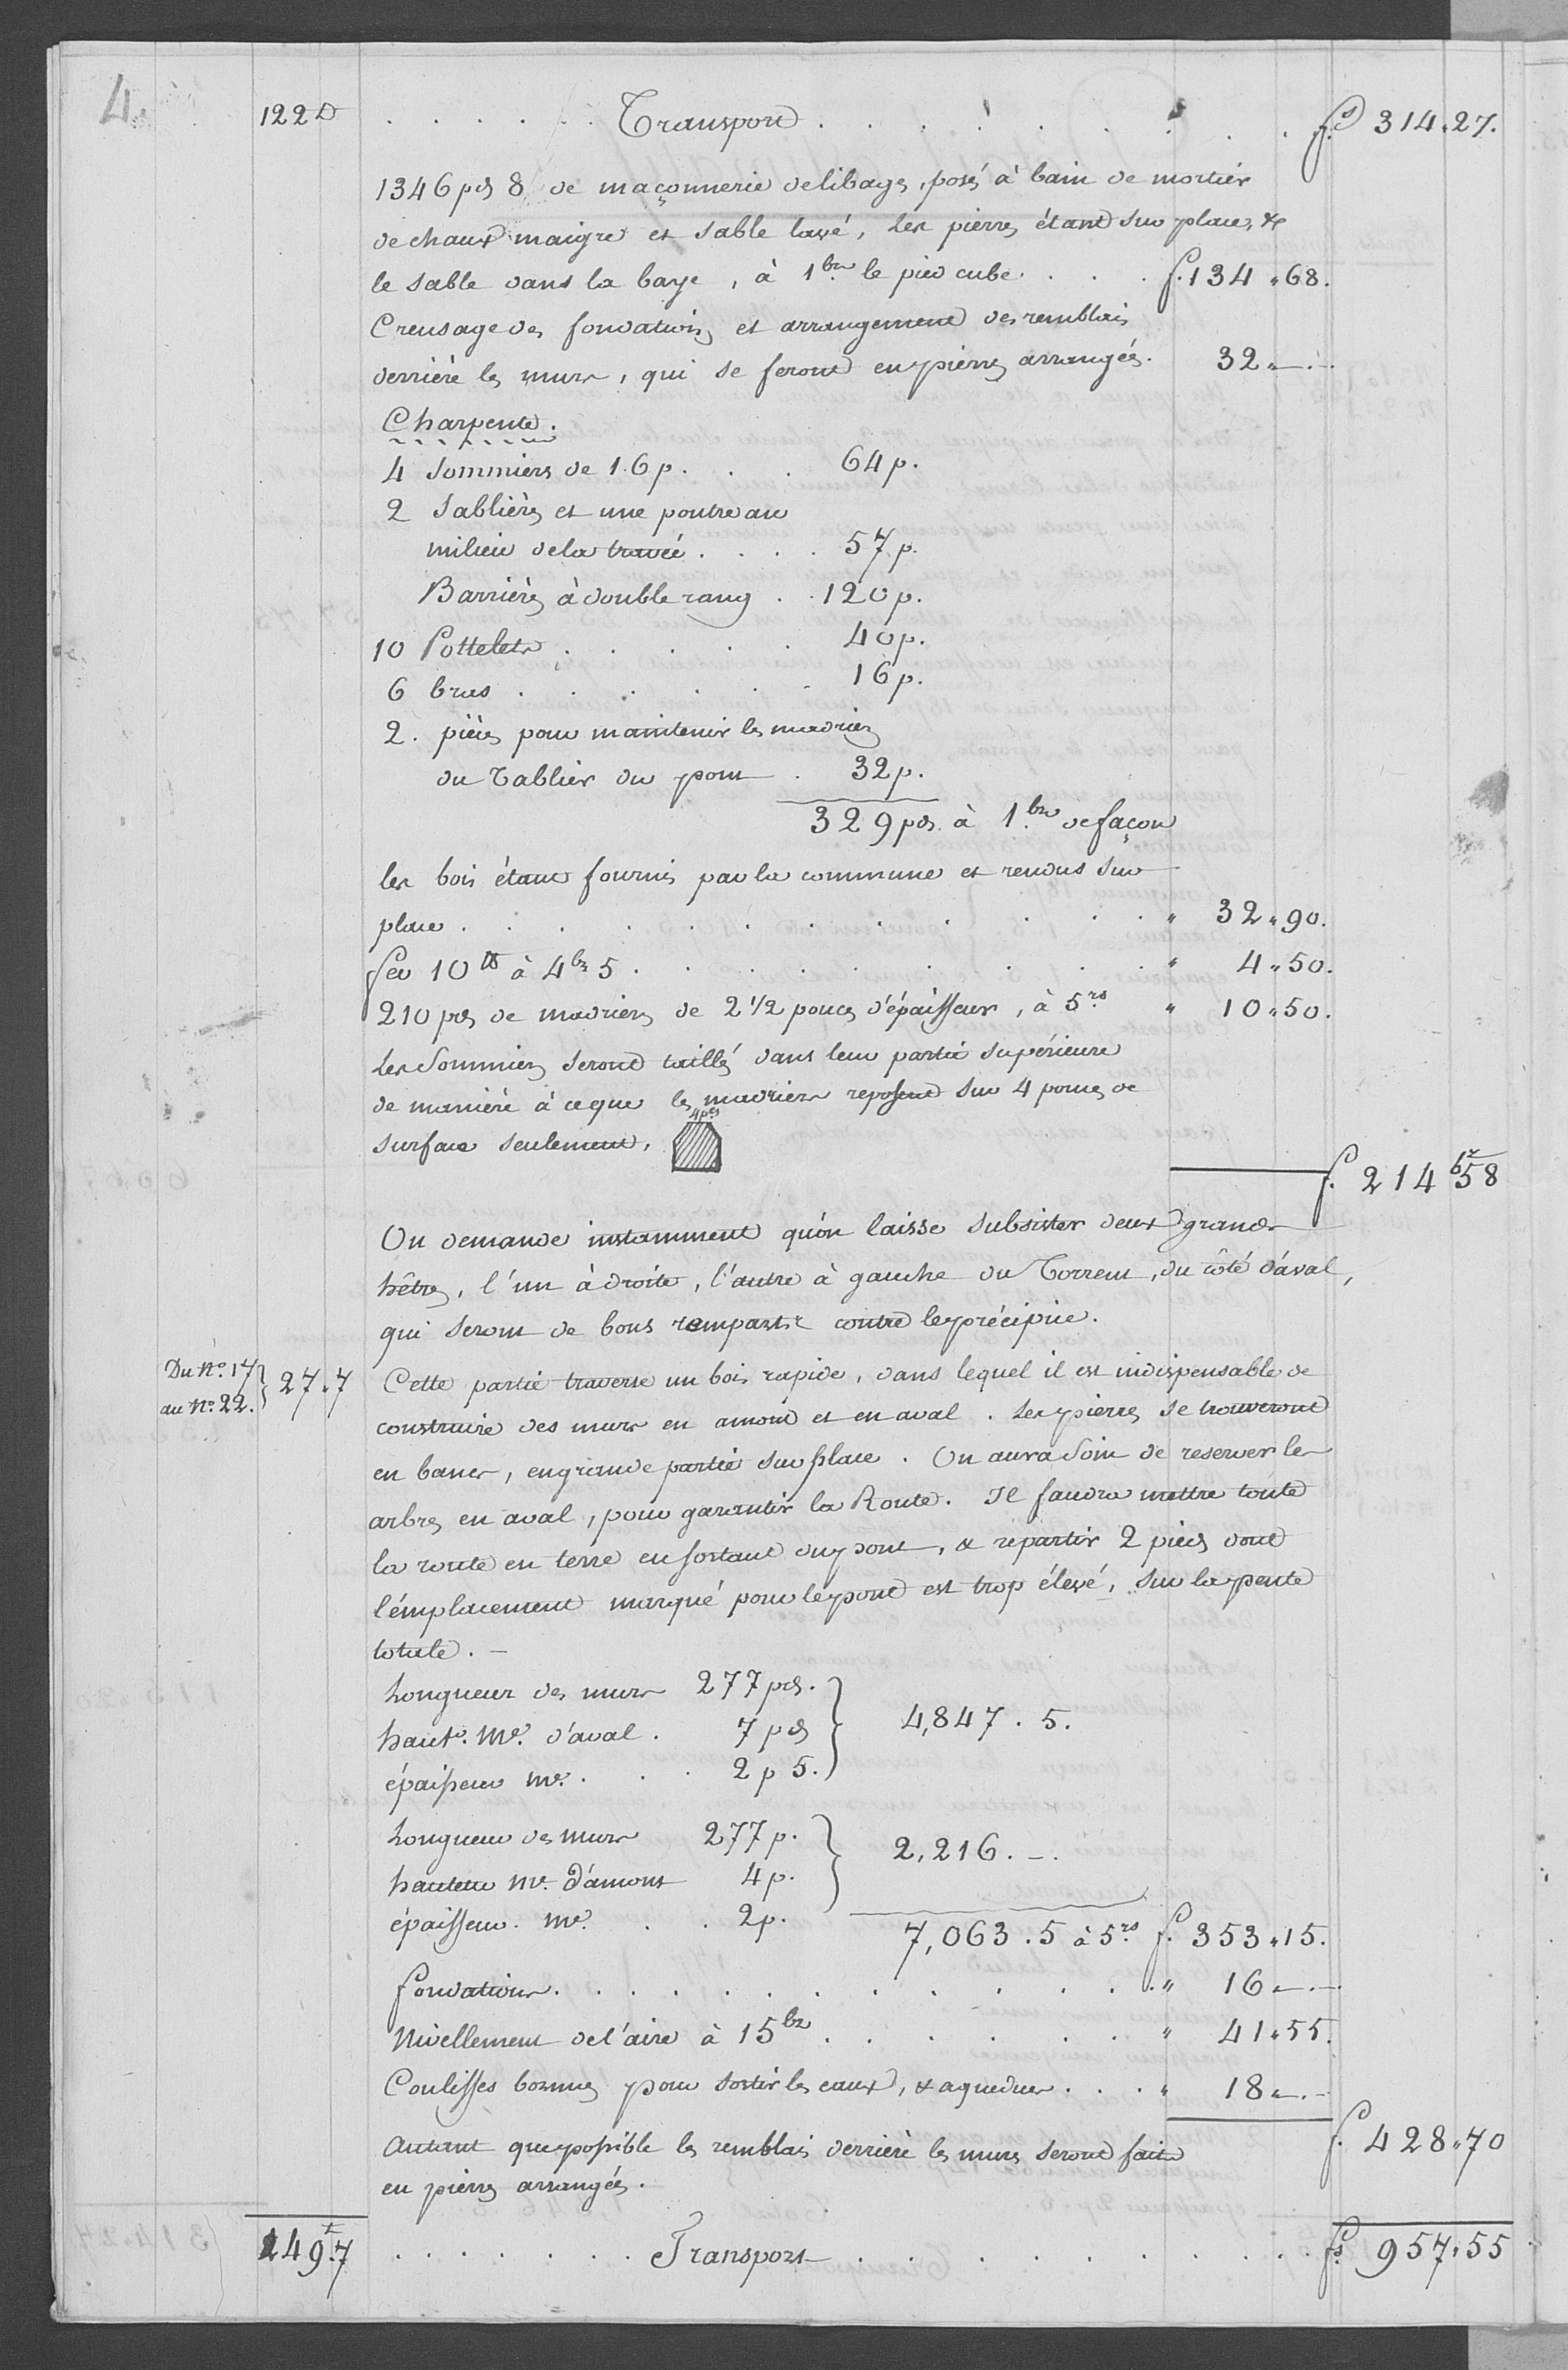 4.
122 D . . . . . . Transport . . . . . . . . f.s 314.27.
1346 pds 8 de maçonnerie de libages, posés à bain de mortier
de chaux maigre et sable lavé, les pierres étant sur place, &
le sable dans la baye, à 1 bz le pied cube . . . f. 134.68.
Creusage des fondations et arrangement des remblais
derrière les murs, qui se feront en pierres arrangées. 32.—.
Charpente.
4 Sommiers de 16 p. . . 64 p.
2 Sablières et une poutre au
milieu de la travée . . . . 57 p.
Barrières à double rang . . 120 p.
10 Pottelets . . . . . 40 p.
6 bras . . . . . . 16 p.
2. pièces pour maintenir les madriers
du Tablier du pont . 32 p.
329 pds à 1 bz de façon
les bois étant fournis par la commune et rendus sur
place . . . . . . . . . . " 32.90.
Fer 10 lb à 4 bz 5 . . . . . . . . " 4.50.
210 pds de madriers de 2 1/2 pouces d'épaisseur, à 5 rs " 10.50.
Les Sommiers seront taillés dans leur partie supérieure
de manière à ce que les madriers reposent sur 4 pouces de
4 pces
surface seulement,
f. 214 bz 58
On demande instamment qu'on laisse subsister deux grands
hêtres, l'un à droite, l'autre à gauche du Torrent, du côté d'aval,
qui seront de bons remparts contre le précipice.
Du No. 17 au No. 22. } 27.7 Cette partie traverse un bois rapide, dans lequel il est indispensable de
construire des murs en amont et en aval. Les pierres se trouveront
en bancs, en grande partie sur place. On aura soin de reserver les
arbres en aval, pour garantir la Route. Il faudra mettre toute
la route en terre en sortant du pont, & répartir 2 pieds dont
l'emplacement marqué pour le pont est trop élevé, sur la pente
totale. —
Longueur des murs 277 pds.
haut.r me. d'aval . 7 pds } 4,847.5.
épaisseur me. . . . 2 p 5.
Longueur des murs 277 p.
hauteur me. d'amont 4 p. } 2,216.—.
épaisseur. me. . . 2 p.
7,063.5 à 5 rs f. 353.15.
fondations . . . . . . . . . . " 16.—.
Nivellement de l'aire à 15 bz . . . . . . " 41.55.
Coulisses bornes pour sortir les eaux, & aqueducs . . . " 18.—.
f. 428.70
Autant que possible les remblais derrière les murs seront faits
en pierres arrangées.
149.7 . . . . . . . Transport . . . . . . . . . f.s 957.55